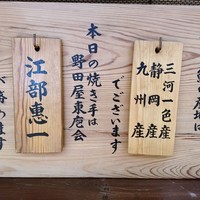 の産地は
三河一色産
静岡産
九州産
でございます
本日の焼き手は
野田屋東庖会
江部惠一